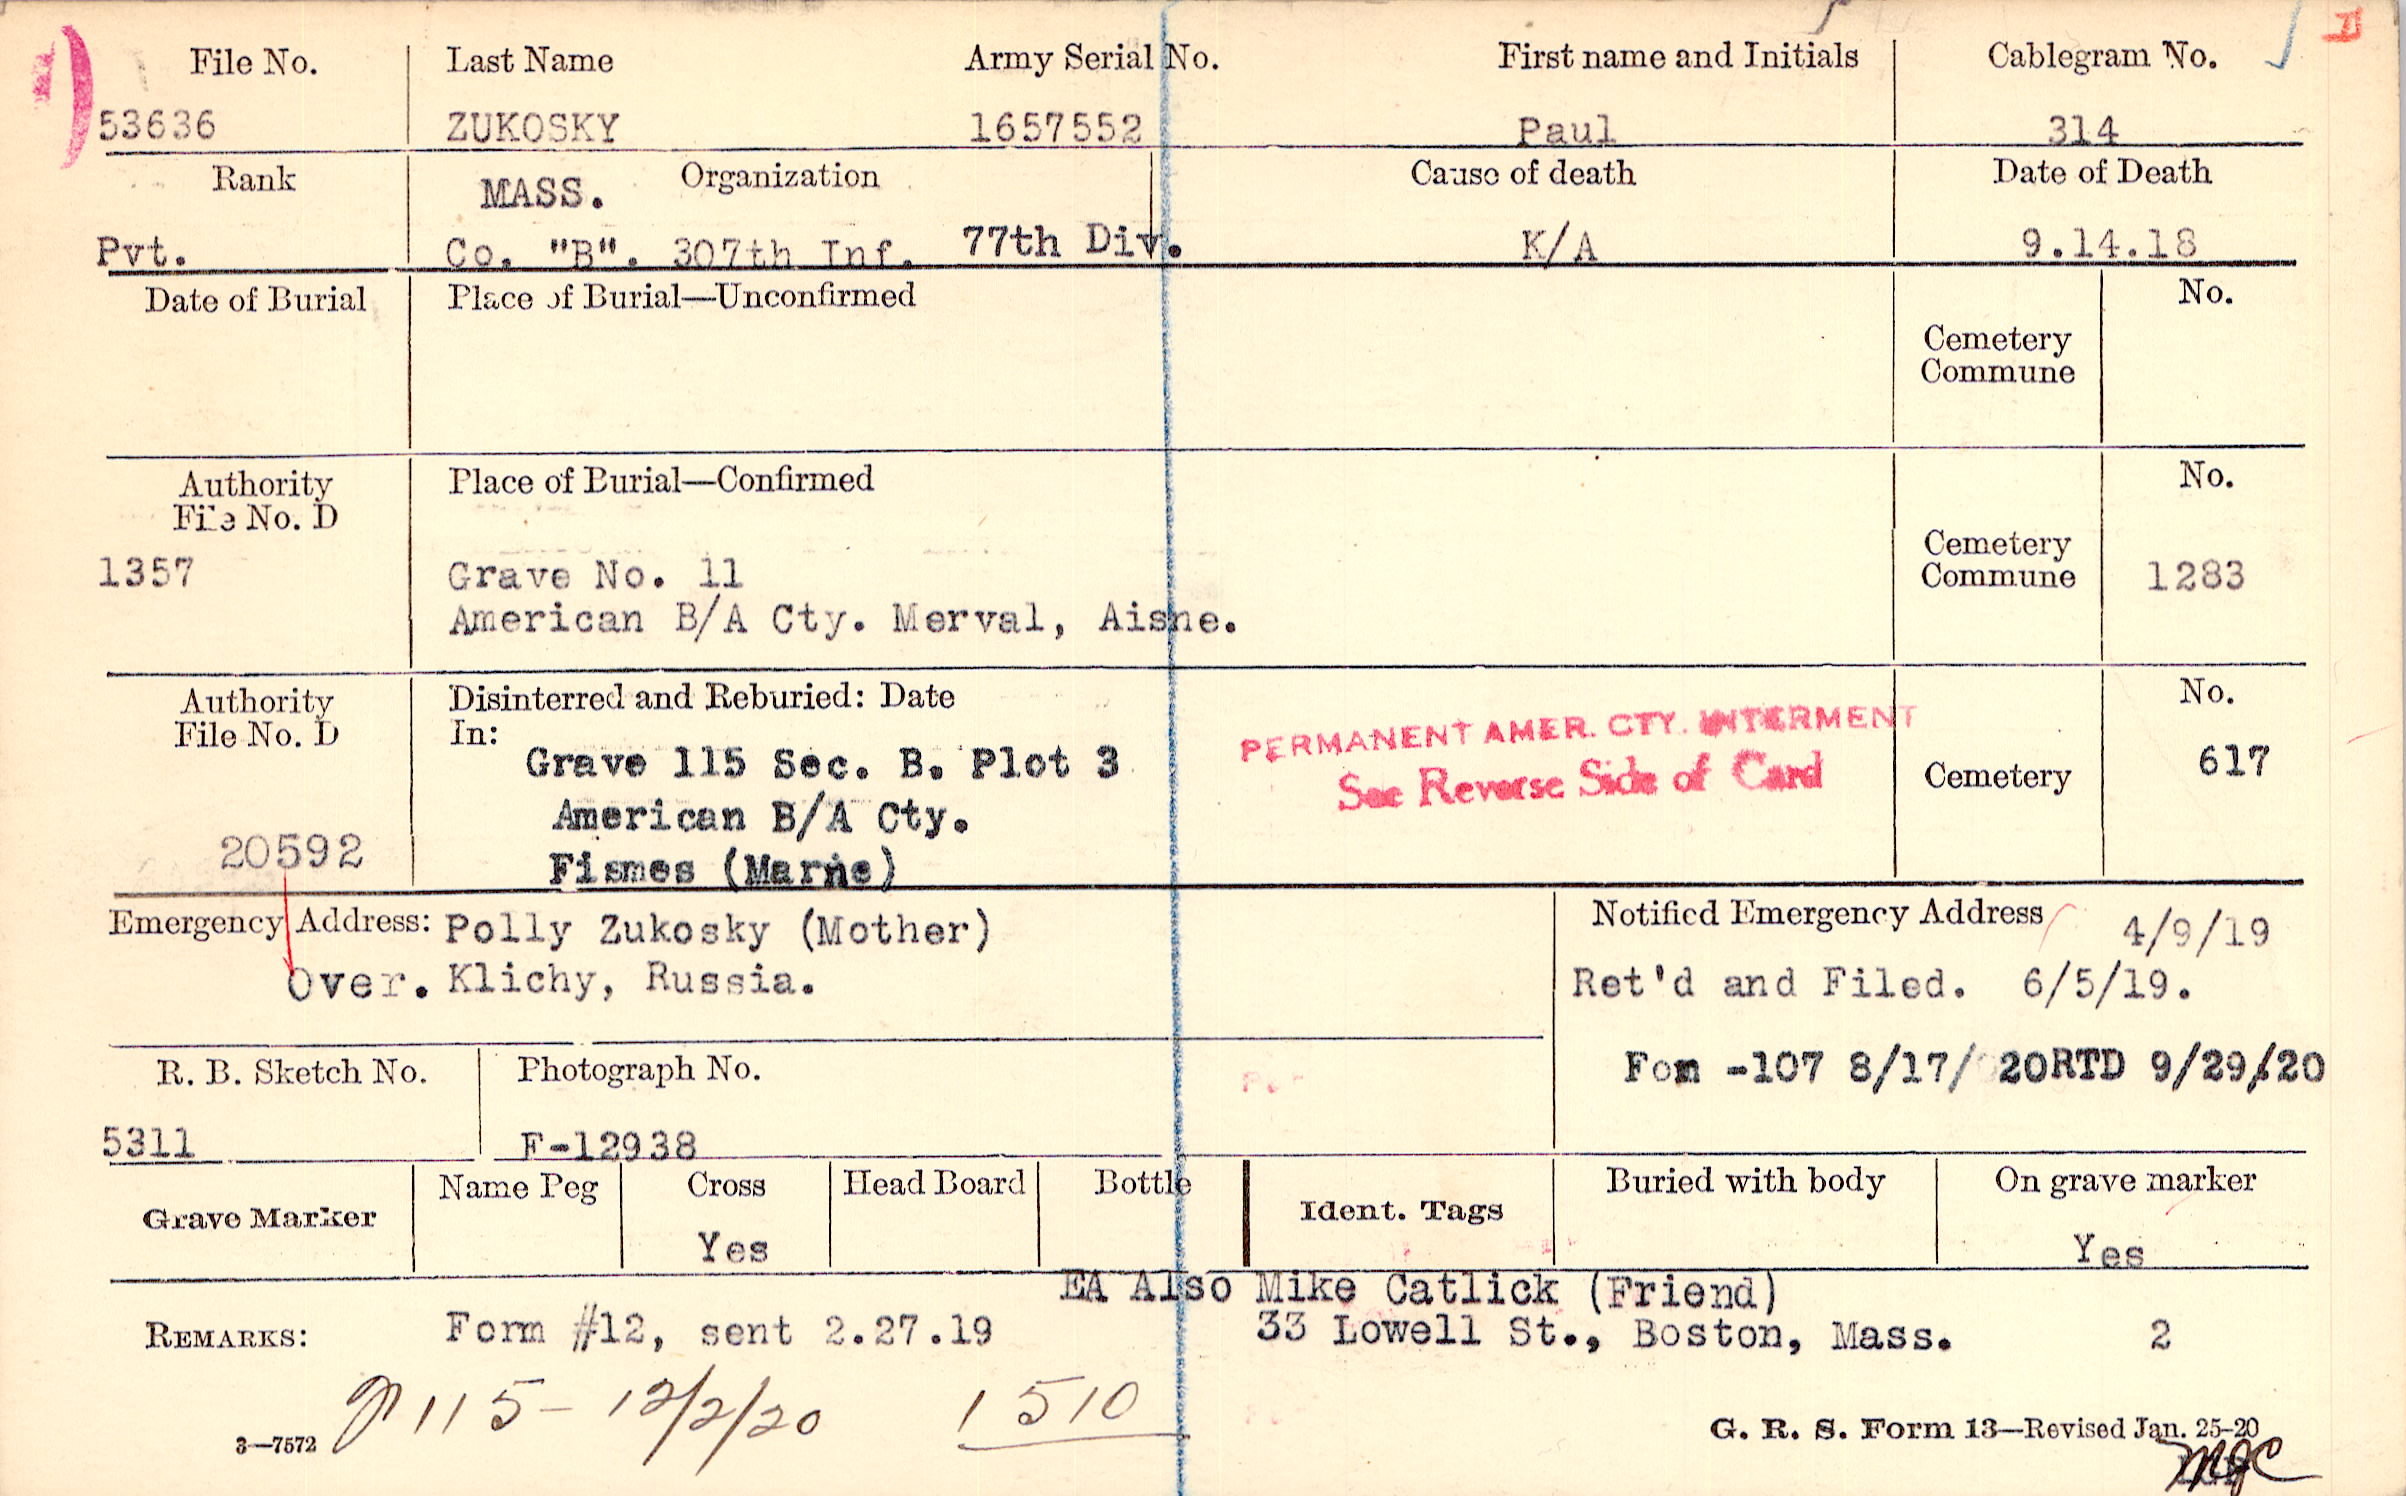 File No. Last Name Army Serial No. First name and Initials Cablegram No.
53636 ZUKOSKY 1657552 Paul 314
Rank MASS. Organization Cause of death Date of Death
Pvt. Co. "B". 307th Inf. 77th Div. K/A 9.14.18
Date of Burial Place of Burial—Unconfirmed No.
Cemetery
Commune
Authority Place of Burial—Confirmed No.
File No. D
Cemetery
1357 Grave No. 11 Commune 1283
American B/A Cty. Merval, Aisne.
Authority Disinterred and Reburied: Date No.
File No. D In: PERMANENT AMER. CTY. INTERMENT
Grave 115 Sec. B. Plot 3 See Reverse Side of Card Cemetery 617
American B/A Cty.
20592 Fismes (Marne)
Emergency Address: Polly Zukosky (Mother) Notified Emergency Address 4/9/19
Over. Klichy, Russia. Ret'd and Filed. 6/5/19.
R. B. Sketch No. Photograph No. -107 8/17/20RTD 9/29/20
5311 F-12938
Grave Marker Name Peg Cross Head Board Bottle Ident. Tags Buried with body On grave marker
Yes Yes
EA Also Mike Catlick (Friend)
REMARKS: Form #12, sent 2.27.19 33 Lowell St., Boston, Mass. 2
115 - 12/2/20 1510
3—7572 G. R. S. Form 13—Revised Jan. 25-20
MJC